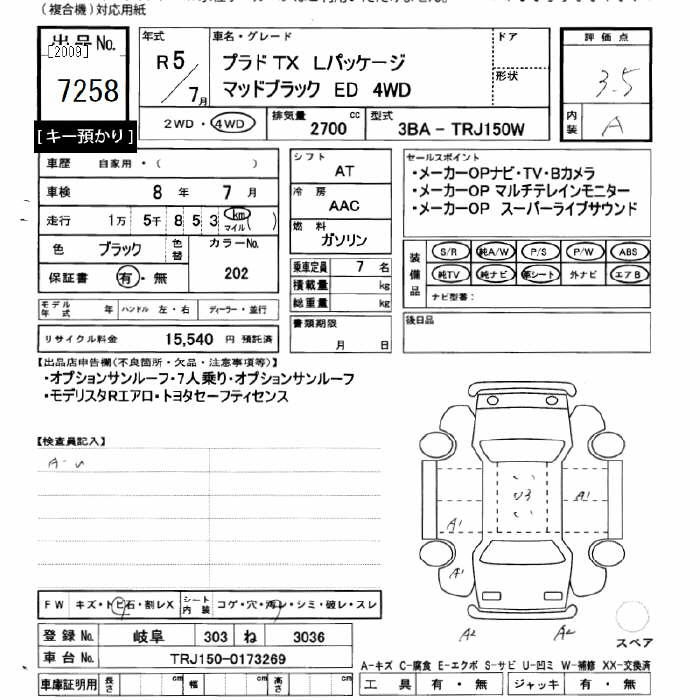 (複合機)対応用紙
出品No.
[2009]
7258
[キー預かり]
年式
R5
7月
車名・グレード
プラドTX Lパッケージ
マッドブラック ED 4WD
ドア
形状
2WD・4WD
排気量
2700 cc
型式
3BA - TRJ150W
評価点
3.5
内装
A
車歴 自家用・( )
車検 8年 7月
走行 1万 5千 8 5 3 km マイル( )
色 ブラック 色替
カラーNo.
202
保証書 有・無
モデル年式 年 ハンドル 左・右 ディーラー・並行
リサイクル料金 15,540 円 預託済
シフト
AT
冷房
AAC
燃料
ガソリン
乗車定員 7 名
積載量 kg
総重量 kg
書類期限
月 日
セールスポイント
・メーカーOPナビ・TV・Bカメラ
・メーカーOP マルチテレインモニター
・メーカーOP スーパーライブサウンド
装備品
S/R 純A/W P/S P/W ABS
純TV 純ナビ 革シート 外ナビ エアB
ナビ型番:
後日品
【出品店申告欄(不良箇所・欠品・注意事項等)】
・オプションサンルーフ・7人乗り・オプションサンルーフ
・モデリスタRエアロ・トヨタセーフティセンス
【検査員記入】
A-U
U3
A1
A1
A1
A2
A2
スペア
FW キズ・トビ石・割レX
シート内装 コゲ・穴・汚レ・シミ・破レ・スレ
登録No. 岐阜 303 ね 3036
車台No. TRJ150-0173269
車庫証明用 長さ cm 幅 cm 高さ cm
A-キズ C-腐食 E-エクボ S-サビ U-凹ミ W-補修 XX-交換済
工具 有・無 ジャッキ 有・無